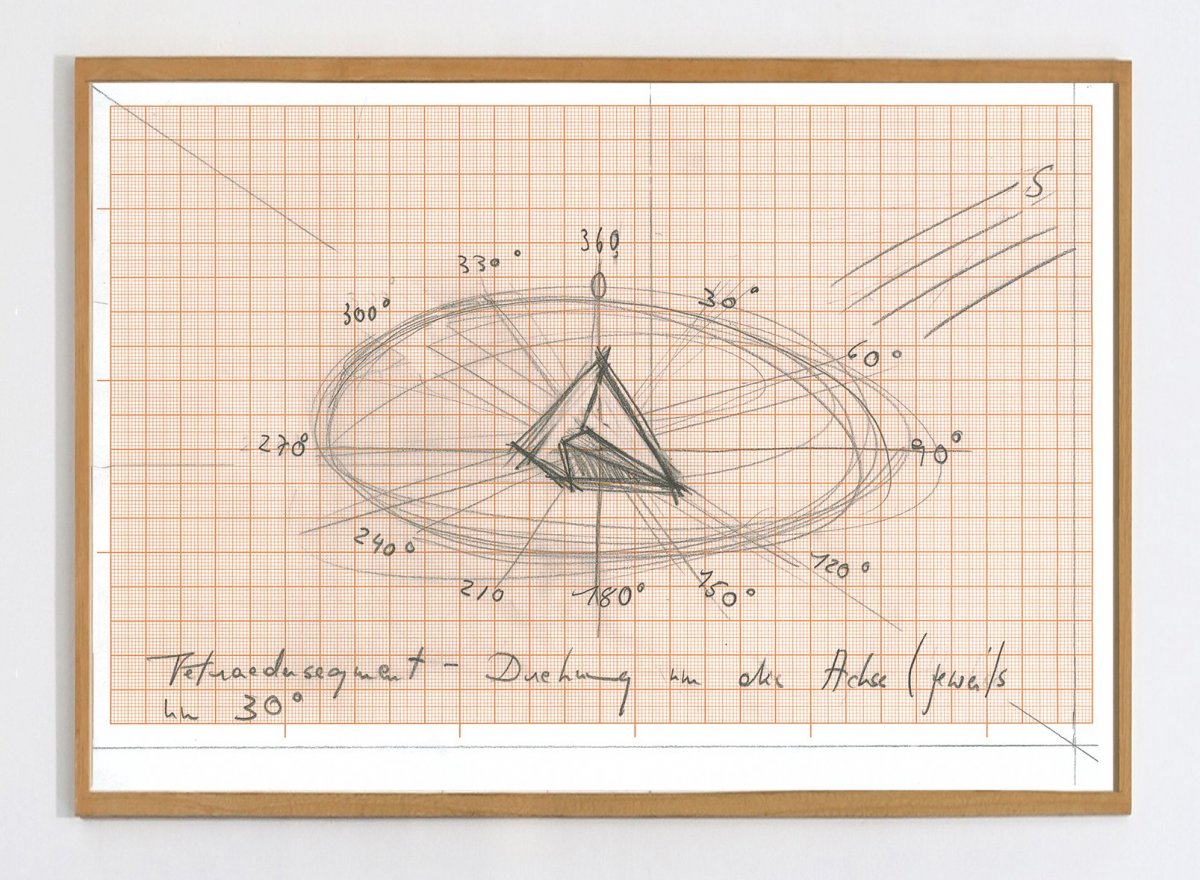 S
360
0
330°
30°
300°
60°
270°
90°
240°
120°
210
180°
150°
Tetraedersegment – Drehung um die Achse (jeweils
um 30°